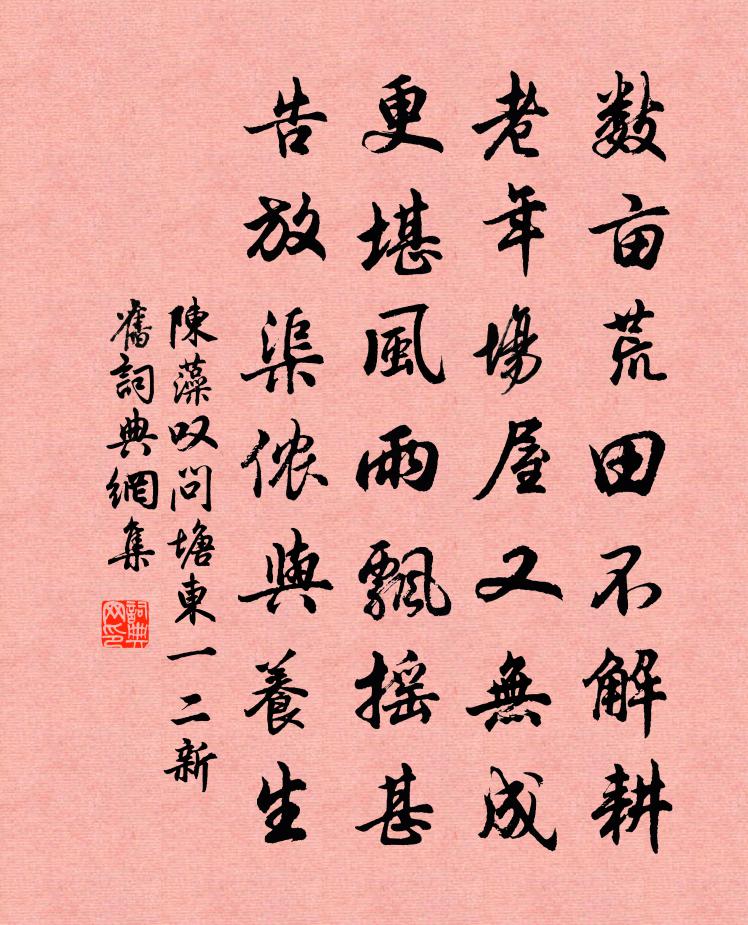 数亩荒田不解耕
老年場屋又無成
更堪風雨飄摇甚
告放渠侬與養生
陳藻叹問塘東一二新
舊詞典網集
詞典
网印